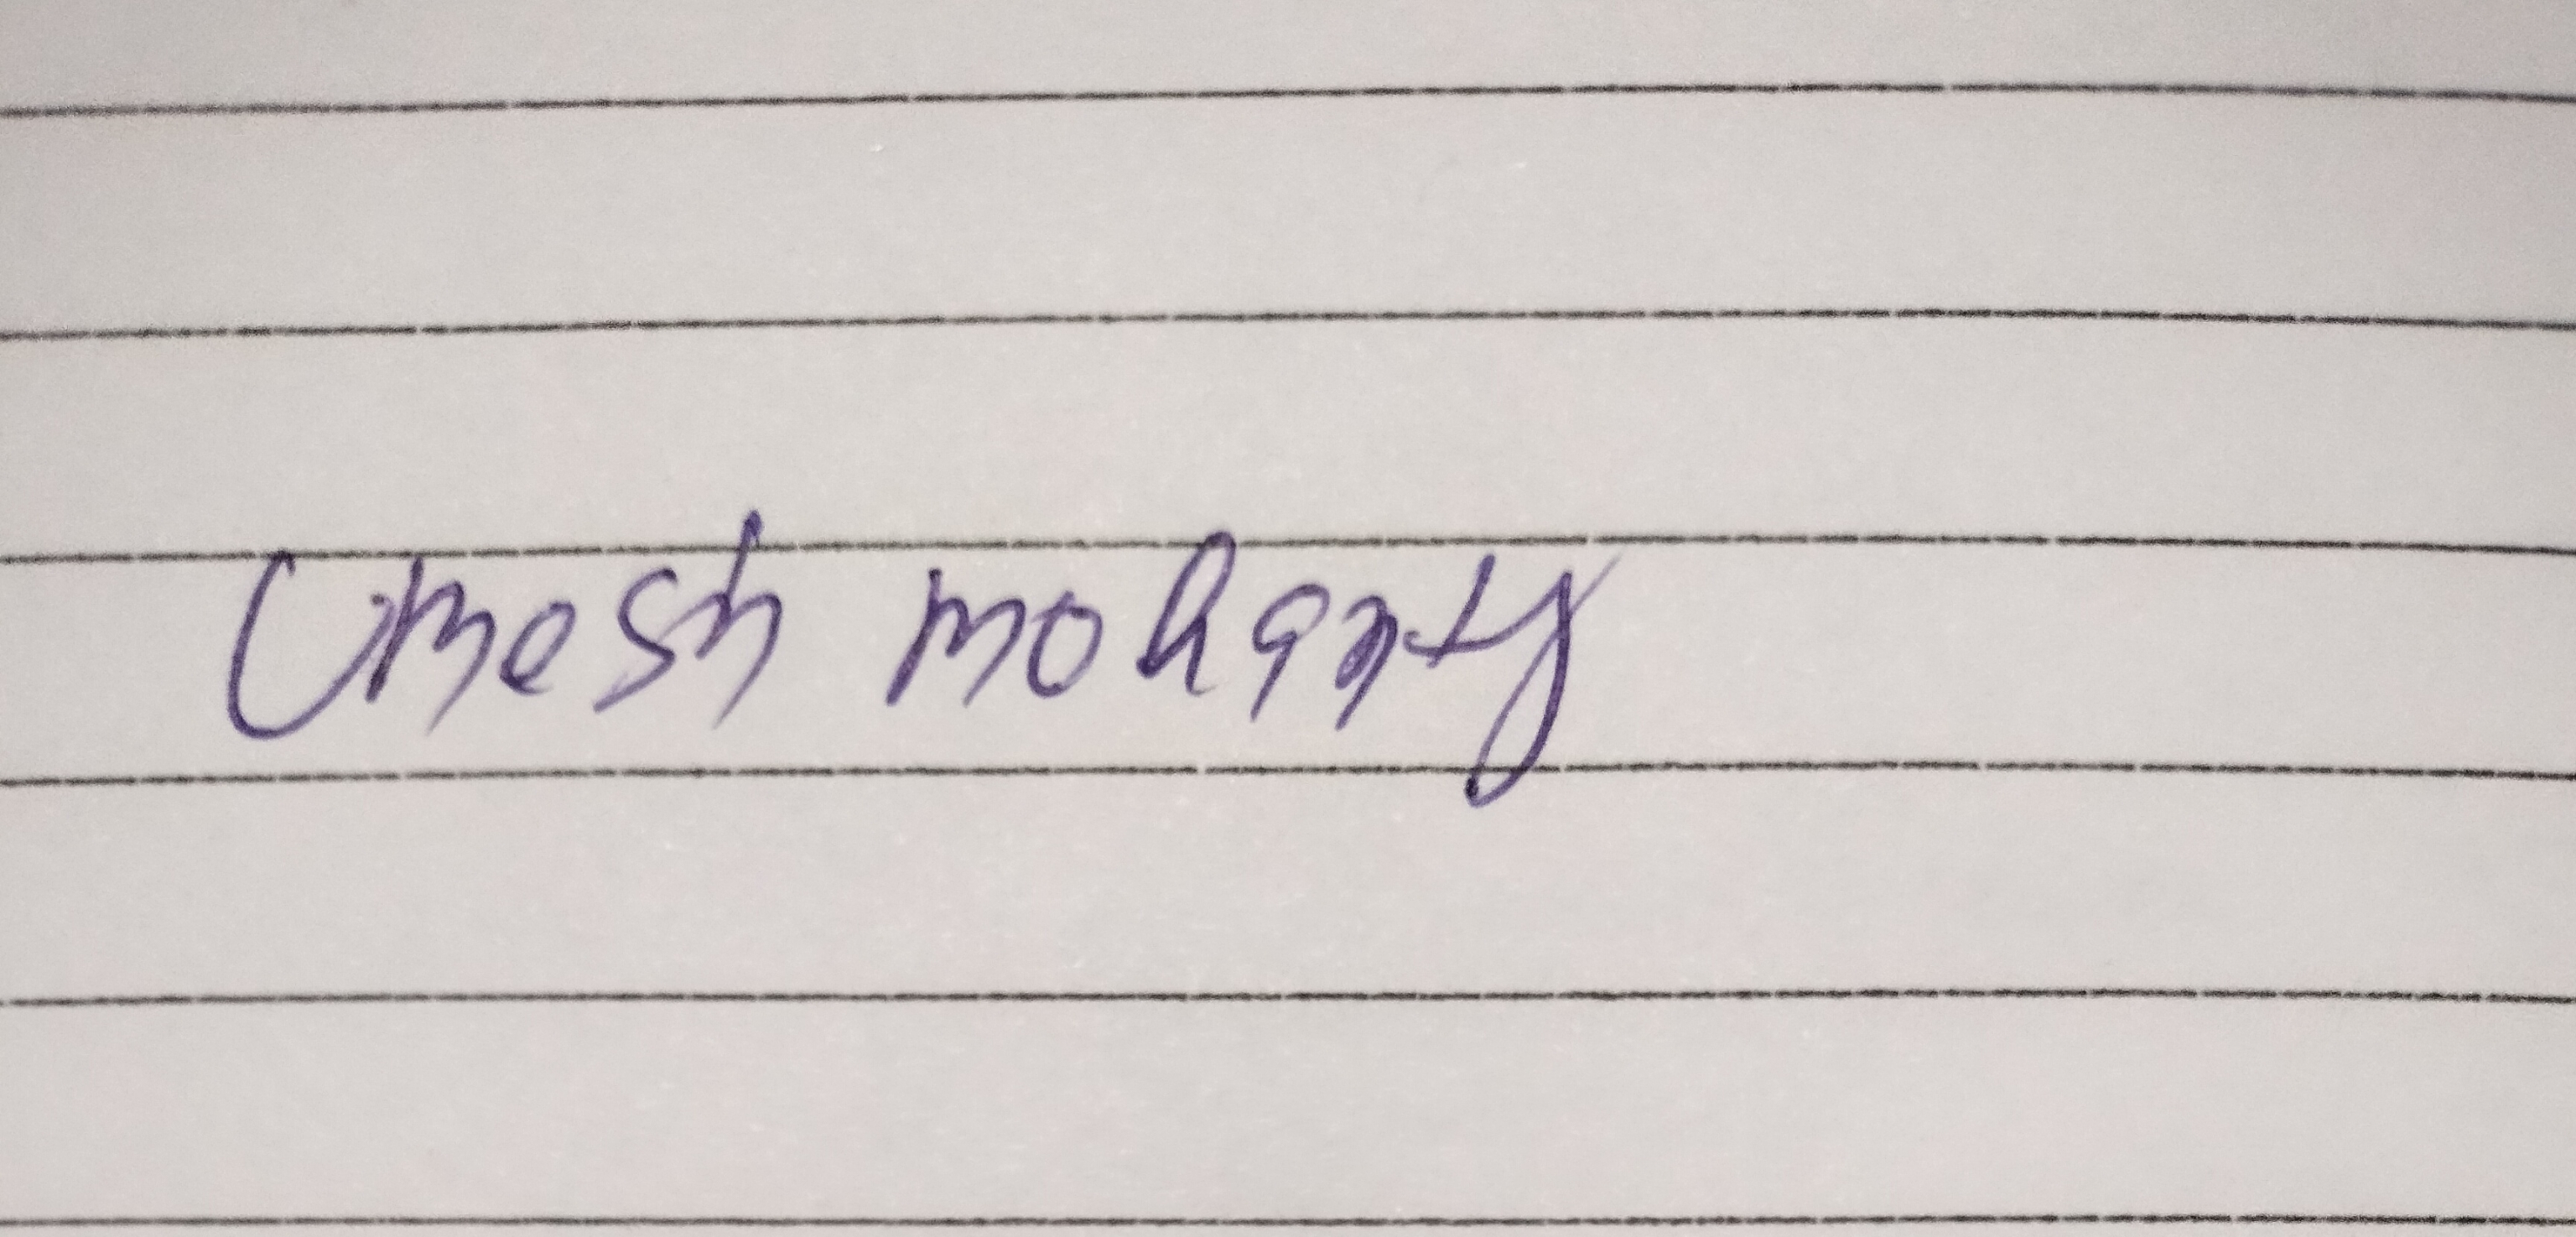 Umesh mohanty